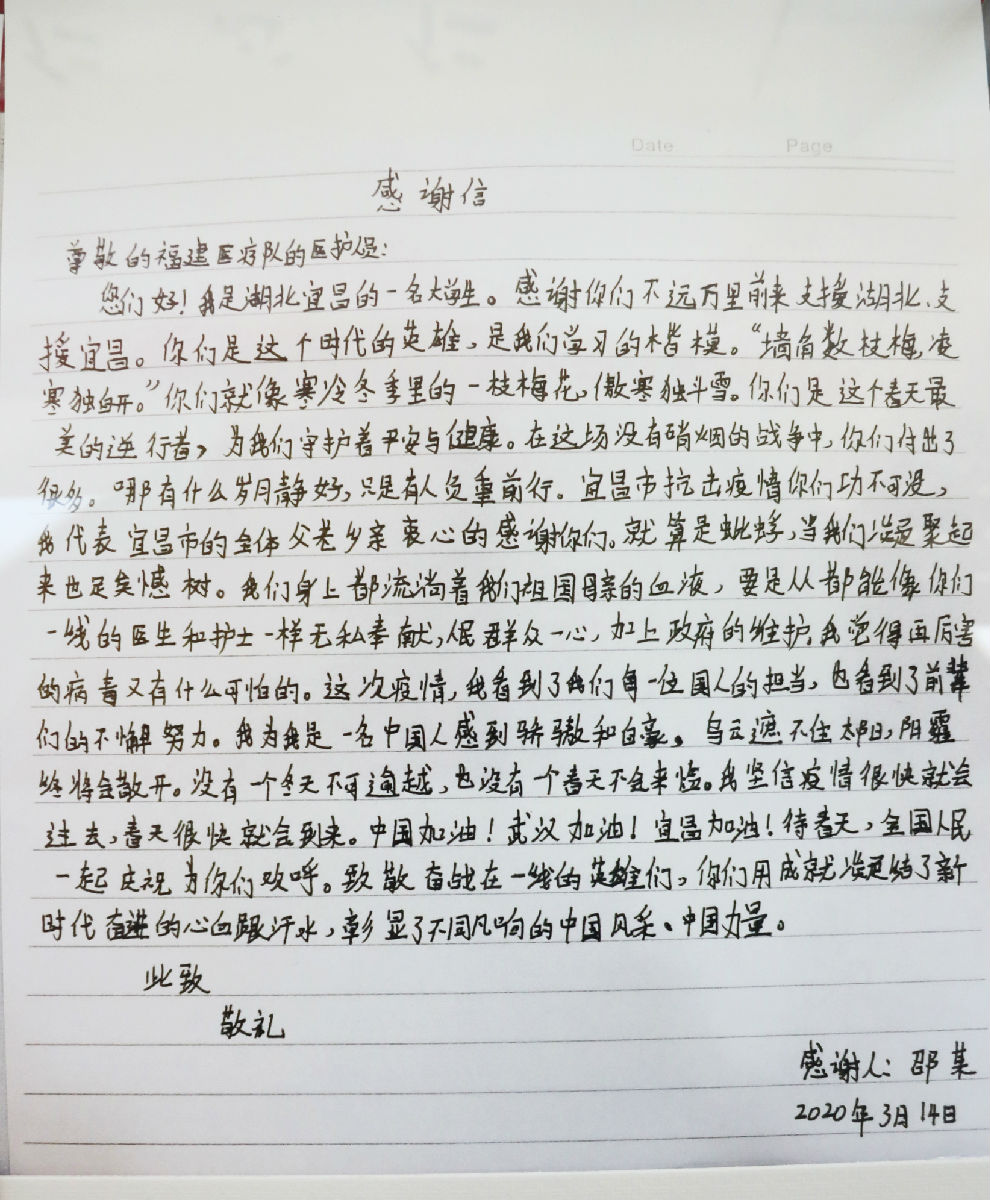 Date Page
感谢信
尊敬的福建医疗队的医护人员:
您们好!我是湖北宜昌的一名大学生。感谢你们不远万里前来支援湖北、支
援宜昌。你们是这个时代的英雄,是我们学习的楷模。“墙角数枝梅,凌
寒独自开。”你们就像寒冷冬季里的一枝梅花,傲寒独斗雪。你们是这个春天最
美的逆行者,为我们守护着平安与健康。在这场没有硝烟的战争中,你们付出了
很多。哪有什么岁月静好,只是有人负重前行。宜昌市抗击疫情你们功不可没,
我代表宜昌市的全体父老乡亲衷心的感谢你们。就算是蚍蜉,当我们凝聚起
来也足矣憾树。我们身上都流淌着我们祖国母亲的血液,要是人人都能像你们
一线的医生和护士一样无私奉献,人民群众一心,加上政府的维护,我觉得再厉害
的病毒又有什么可怕的。这次疫情,我看到了我们每一位国人的担当,也看到了前辈
们的不懈努力。我为我是一名中国人感到骄傲和自豪。乌云遮不住太阳,阴霾
终将会散开。没有一个冬天不可逾越,也没有一个春天不会来临。我坚信疫情很快就会
过去,春天很快就会到来。中国加油!武汉加油!宜昌加油!待春天,全国人民
一起庆祝为你们欢呼。致敬奋战在一线的英雄们,你们用成就凝结了新
时代奋进的心血跟汗水,彰显了不同凡响的中国风采、中国力量。
此致
敬礼
感谢人:邵某
2020年3月14日